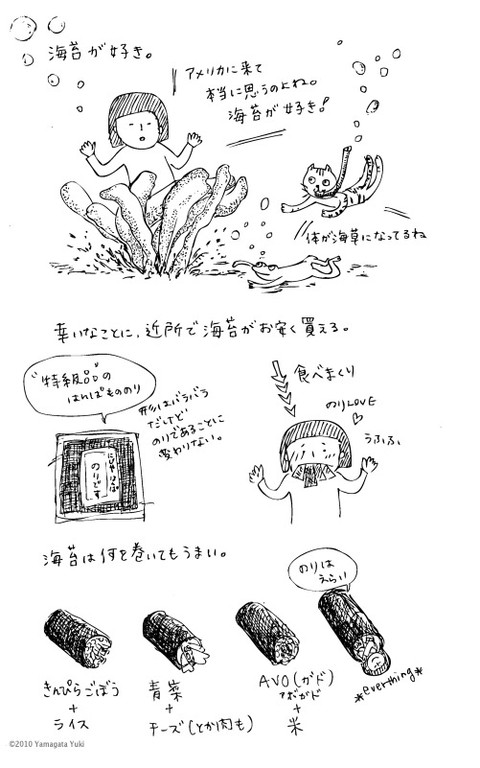 海苔が好き。
アメリカに来て
本当に思うのよね。
海苔が好き!
体が海草になってるね
幸いなことに、近所で海苔がお安く買える。
"特級品"の
はんぱもののり
形はバラバラ
だけど
のりであることに
変わりない。
のりです
食べまくり
のりLOVE
うふふ
海苔は何を巻いてもうまい。
のりは
えらい
きんぴらごぼう
+
ライス
青菜
+
チーズ(とか肉も)
AVO(カド)
アボガド
+
米
*everything*
©2010 Yamagata Yuki